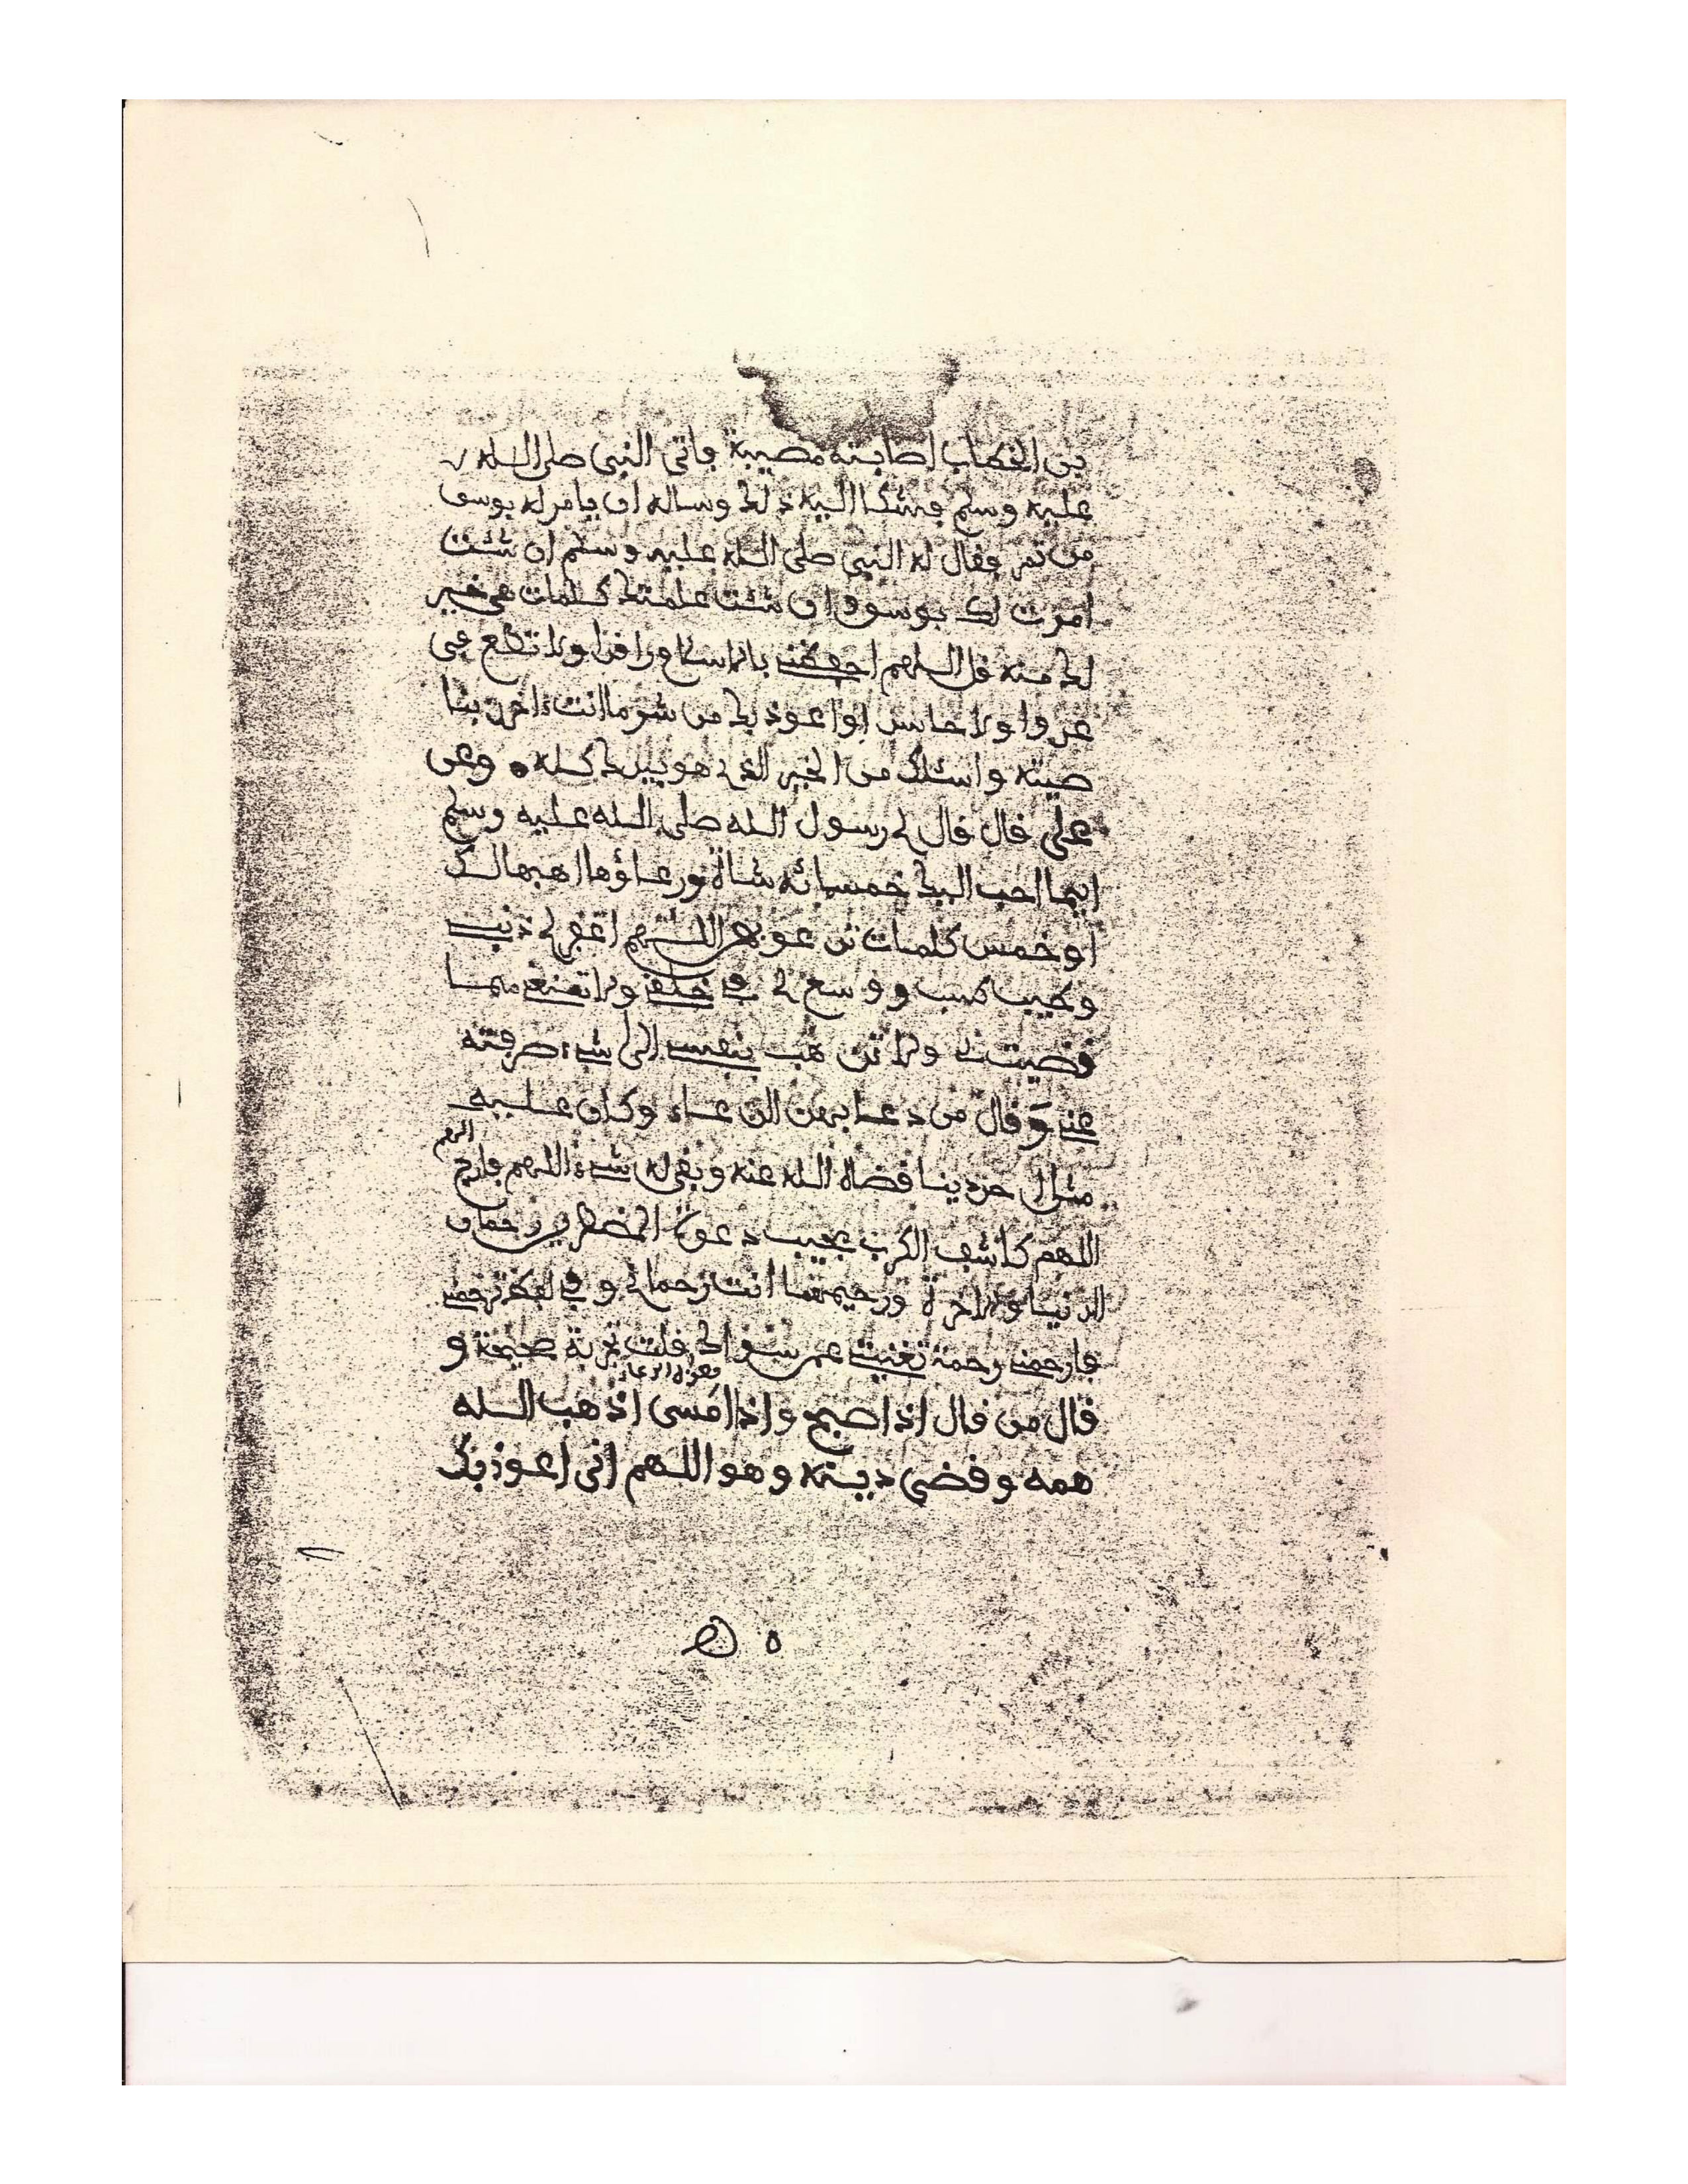 بن الخطاب اصابته مصيبة فاتى النبي صلى الله
عليه وسلم فشكا اليه ذلك وساله ان يامر له بوسق
من تمر فقال له النبي صلى الله عليه وسلم ان شئت
امرت لك بوسق وان شئت علمتك كلمات هي خير
لك منه قل اللهم احفظني بالاسلام راقدا ولا تطع في
عدوا ولا حاسدا واعوذ بك من شر ما انت ءاخذ بنا
صيته واسئلك من الخير الذي هو بيدك كله وعن
علي قال قال لي رسول الله صلى الله عليه وسلم
ايما احب اليك خمسمائه شاة ورعاؤها اهبها لك
او خمس كلمات تدعو بهن اللهم اغفر لي ذنبي
وطيب كسبي ووسع لي في خلقي ولا تمنعني مما
قضيت لي ولا تذهب بنفسي الى شيء صرفته
عني وقال من دعا بهذا الدعاء وكان عليه
مثل احد دينا قضاه الله عنه وبقي له شيء اللهم فارج
الهم
اللهم كاشف الكرب مجيب دعوة المضطرين رحمان
الدنيا والاخرة ورحيمهما انت رحماني وفي ترحمني
فارحمني رحمة تغنيني عمن سواك قلت تجربة صحيحة و
وهذه الدعاء
قال من قال اذا اصبح واذا امسى اذهب الله
همه وقضى دينه وهو اللهم اني اعوذ بك